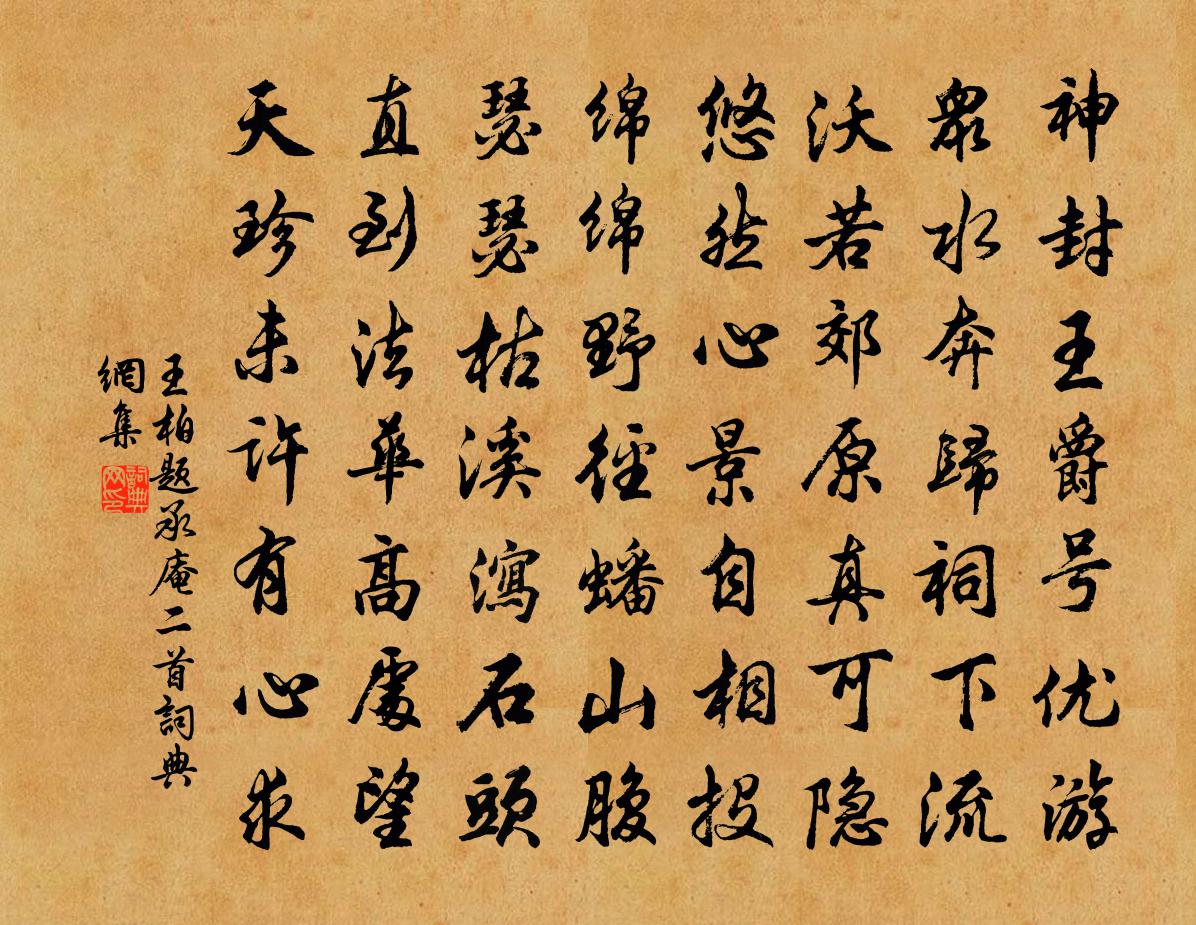 神封王爵号优游
眾水奔歸祠下流
沃若郊原真可隐
悠然心景自相投
绵绵野徑蟠山腹
瑟瑟枯溪瀉石頭
直到法華高處望
天珍未許有心求
王柏题承庵二首詞典
網集
詞典
网印